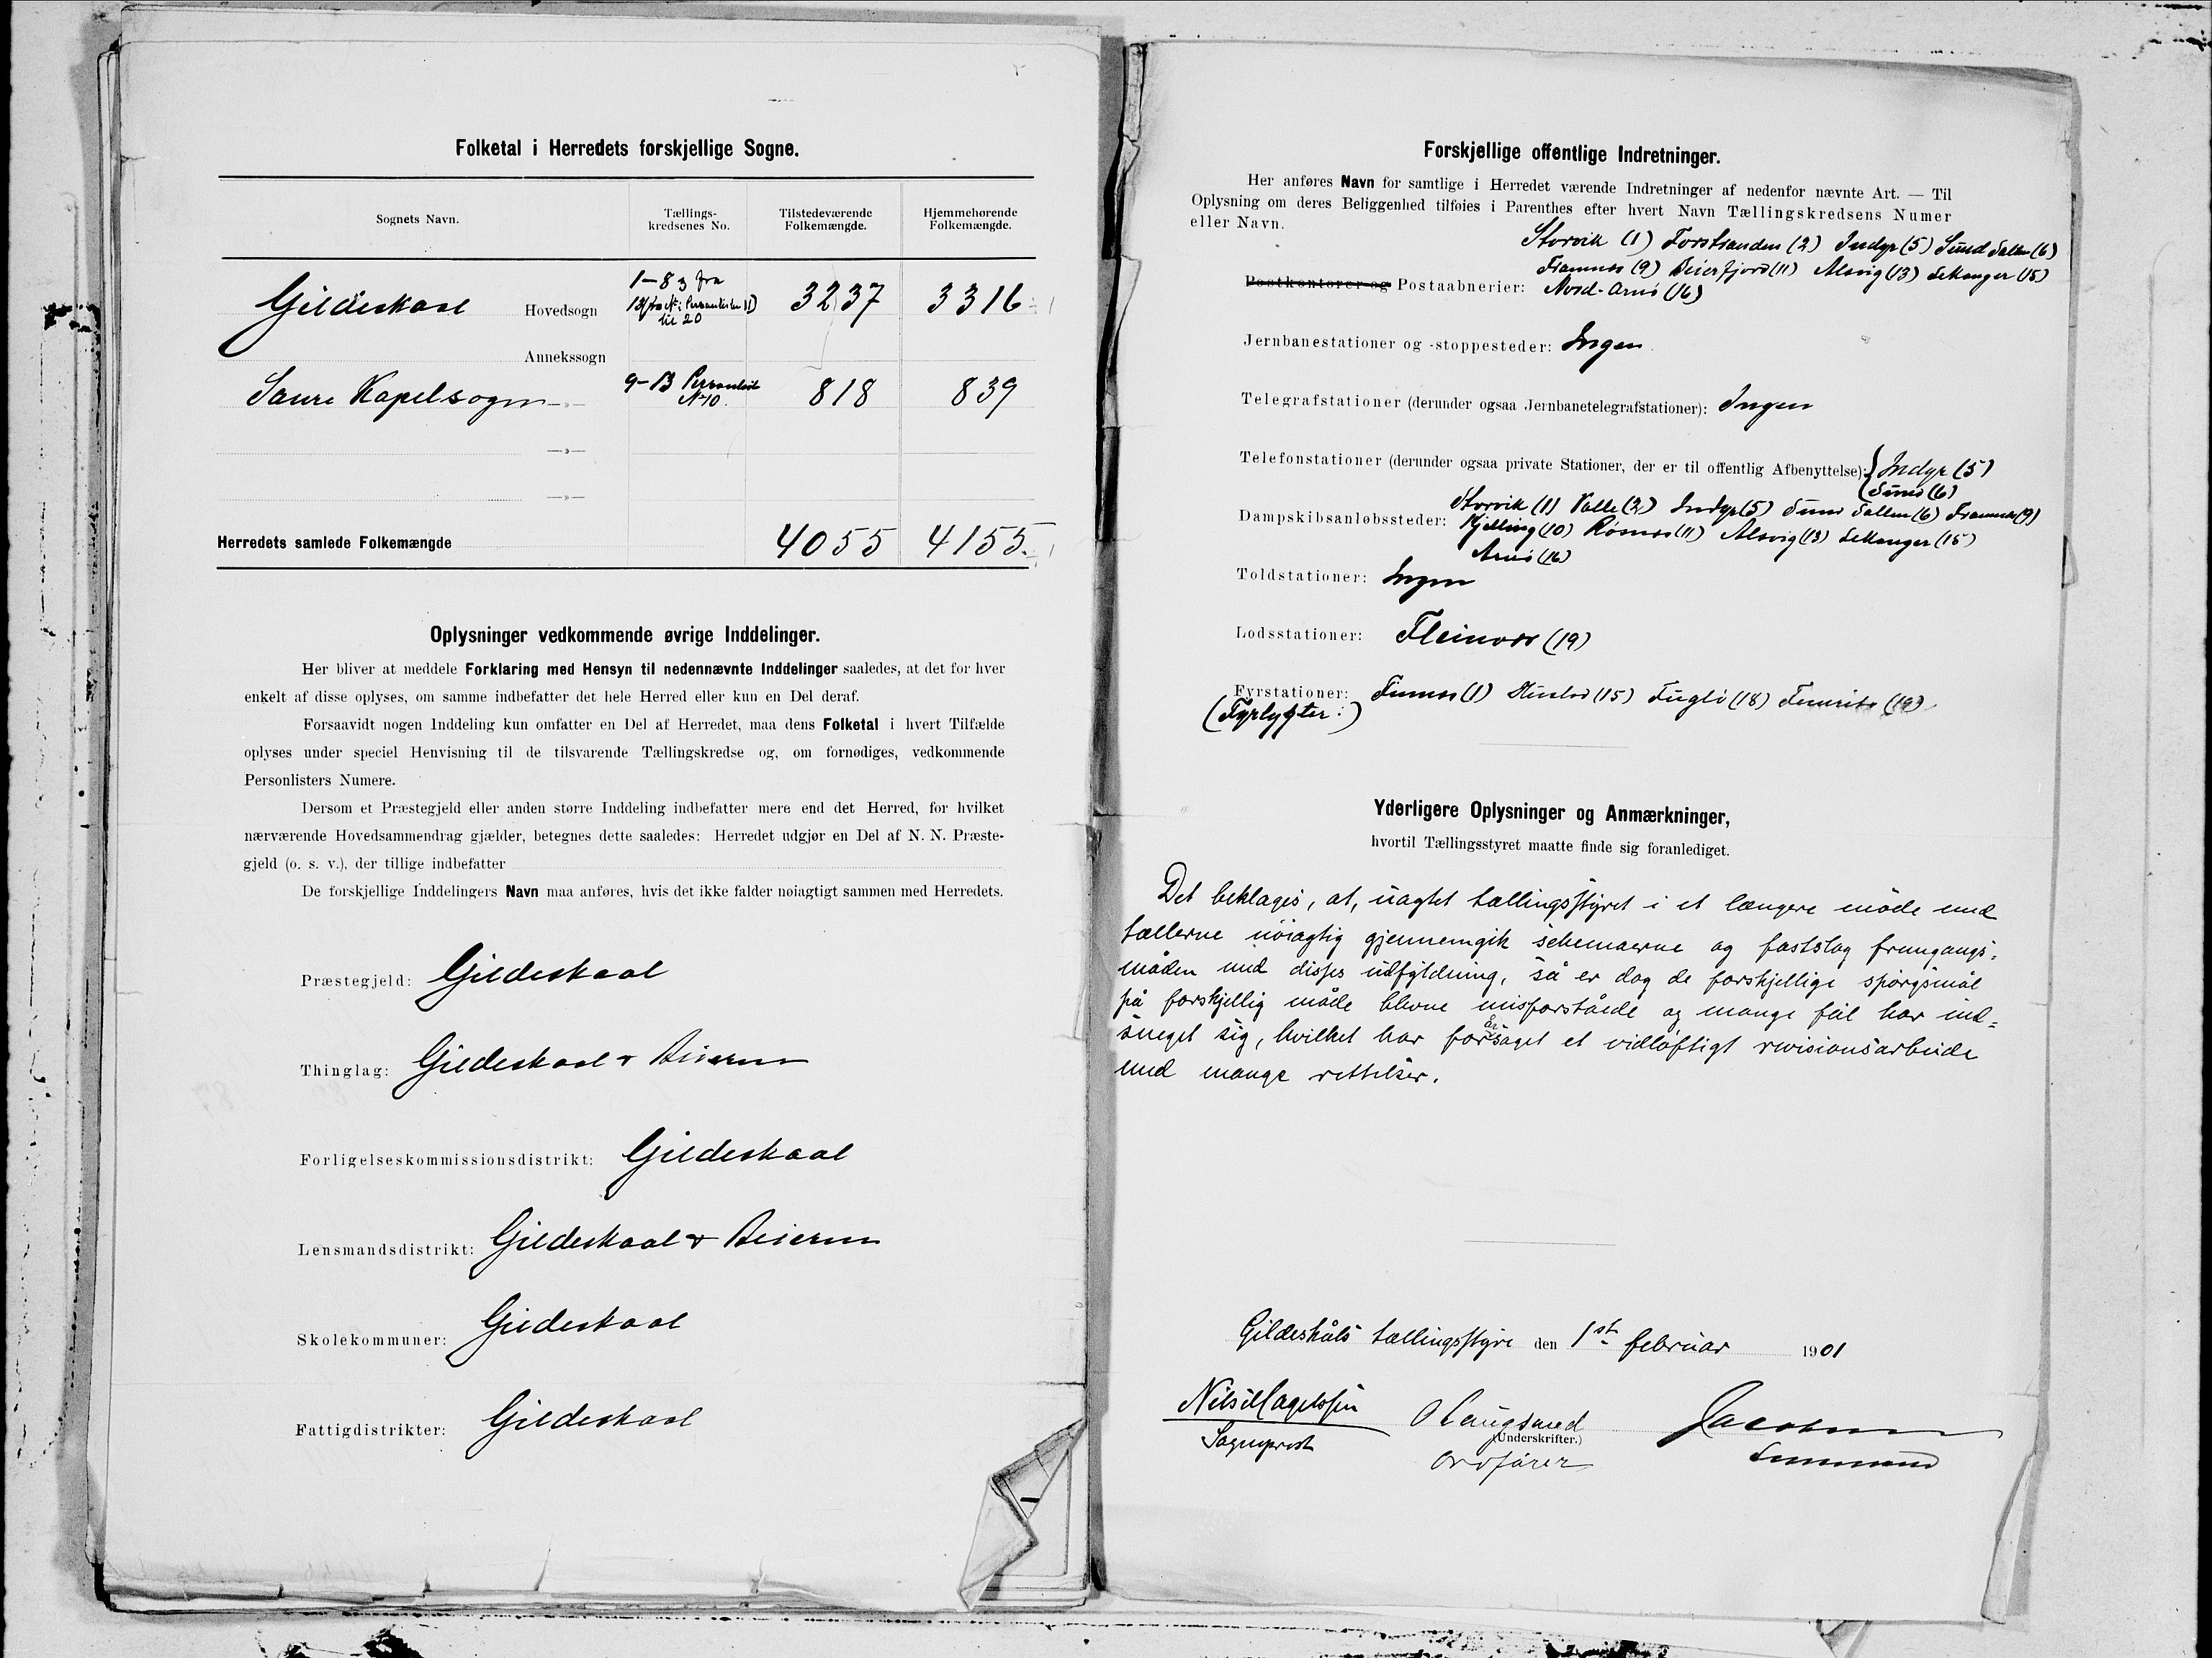 Folketal i Herredets forskjellige Sogne.
Sognets Navn.
Tællings-
kredsenes No.
Tilstedeværende
Folkemængde.
Hjemmehørende
Folkemængde.
Gildeskaal Hovedsogn 1-8 og fra 3237 3316
til 20
Annekssogn
Saura Kapelsogn —»— 9-13 Personliste No 10. 818 839
—»—
—»—
Herredets samlede Folkemængde 4055 4155
Oplysninger vedkommende øvrige Inddelinger.
Her bliver at meddele Forklaring med Hensyn til nedennævnte Inddelinger saaledes, at det for hver
enkelt af disse oplyses, om samme indbefatter det hele Herred eller kun en Del deraf.
Forsaavidt nogen Inddeling kun omfatter en Del af Herredet, maa dens Folketal i hvert Tilfælde
oplyses under speciel Henvisning til de tilsvarende Tællingskredse og, om fornødiges, vedkommende
Personlisters Numere.
Dersom et Præstegjeld eller anden større Inddeling indbefatter mere end det Herred, for hvilket
nærværende Hovedsammendrag gjælder, betegnes dette saaledes: Herredet udgjør en Del af N. N. Præste-
gjeld (o. s. v.), der tillige indbefatter
De forskjellige Inddelingers Navn maa anføres, hvis det ikke falder nøiagtigt sammen med Herredets.
Præstegjeld: Gildeskaal
Thinglag: Gildeskaal & Beieren
Forligelseskommissionsdistrikt: Gildeskaal
Lensmandsdistrikt: Gildeskaal & Beieren
Skolekommuner: Gildeskaal
Fattigdistrikter: Gildeskaal
Forskjellige offentlige Indretninger.
Her anføres Navn for samtlige i Herredet værende Indretninger af nedenfor nævnte Art. — Til
Oplysning om deres Beliggenhed tilføies i Parenthes efter hvert Navn Tællingskredsens Numer
eller Navn.
Storvik (1) Forstranden (2) Indyr (5) Sund Salten (6)
Framnes (9) Beierfjord (11) Alsvig (13) Lekanger (15)
Postkontorer og Postaabnerier: Nord-Arnö (16)
Jernbanestationer og -stoppesteder: Ingen
Telegrafstationer (derunder ogsaa Jernbanetelegrafstationer): Ingen
Telefonstationer (derunder ogsaa private Stationer, der er til offentlig Afbenyttelse): Indyr (5)
Sund (6)
Storvik (1) Valle (2) Indyr (5) Sund Salten (6) Framnes (9)
Dampskibsanløbssteder: Kjelling (10) Røsnes (11) Alsvig (13) Lekanger (15)
Arnö (16)
Toldstationer: Ingen
Lodsstationer: Fleinvær (19)
Fyrstationer: Finnes (1) (15) Fuglö (18) (19)
(Fyrlygter:)
Yderligere Oplysninger og Anmærkninger,
hvortil Tællingsstyret maatte finde sig foranlediget.
Det beklages, at, uagtet tællingsstyret i et længere möde med
tællerne nöiagtig gjennemgik schemaerne og fastslog fremgangs-
måden med disses udfyldning, så er dog de forskjellige spörgsmål
på forskjellig måde blevne misforståede og mange feil har ind-
sneget sig, hvilket har forårsaget et vidlöftigt revisionsarbeide
med mange rettelser.
Gildeskåls tællingsstyre den 1st februar 1901
Sogneprest
O Langsæed
Jacobsen
(Underskrifter.)
Ordförer
Lensmand